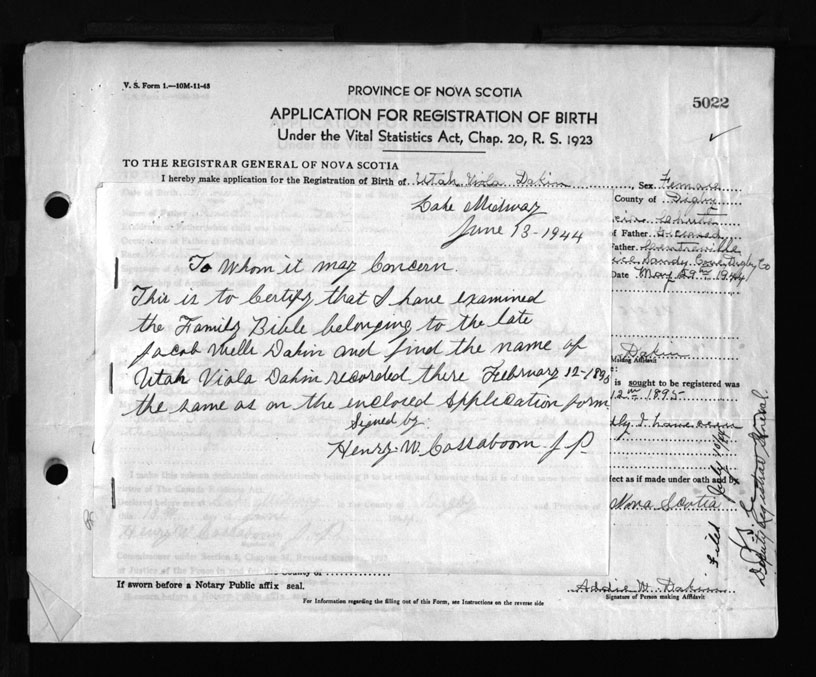 V. S. Form 1.—10M-11-43
PROVINCE OF NOVA SCOTIA
5022
APPLICATION FOR REGISTRATION OF BIRTH
Under the Vital Statistics Act, Chap. 20, R. S. 1923
TO THE REGISTRAR GENERAL OF NOVA SCOTIA
I hereby make application for the Registration of Birth of Utah Viola Dakin, Sex Female
County of Digby
Lake Midway
June 13-1944
of Father
Father Centreville
Sandy Cove Digby Co
Date May 29th 1944
To Whom it may Concern.
This is to Certify that I have examined
the Family Bible belonging to the late
Jacob Wells Dakin and find the name of
Utah Viola Dakin recorded there February 12-1895
the same as on the enclosed Application form
Signed by
Henry W. Cossaboom J. P.
Dakin
Making Affidavit
is sought to be registered was
12th 1895
I have seen
fect as if made under oath and by
Nova Scotia
Filed July 10/44
Deputy Registrar General.
the County of
If sworn before a Notary Public affix seal.
Addie W. Dakin
Signature of Person making Affidavit
For Information regarding the filling out of this Form, see Instructions on the reverse side